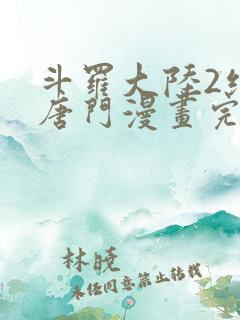 斗羅大陸2
唐門漫畫完
林暁
未任同意禁止转载